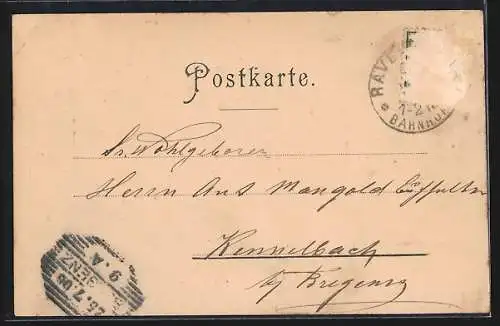 Postkarte.
RAVE
1-2 N
BAHNHOF
Sr. Wohlgeboren
Herrn Ant Mangold
Kennelbach
by Bregenz
9. A
26.7.00